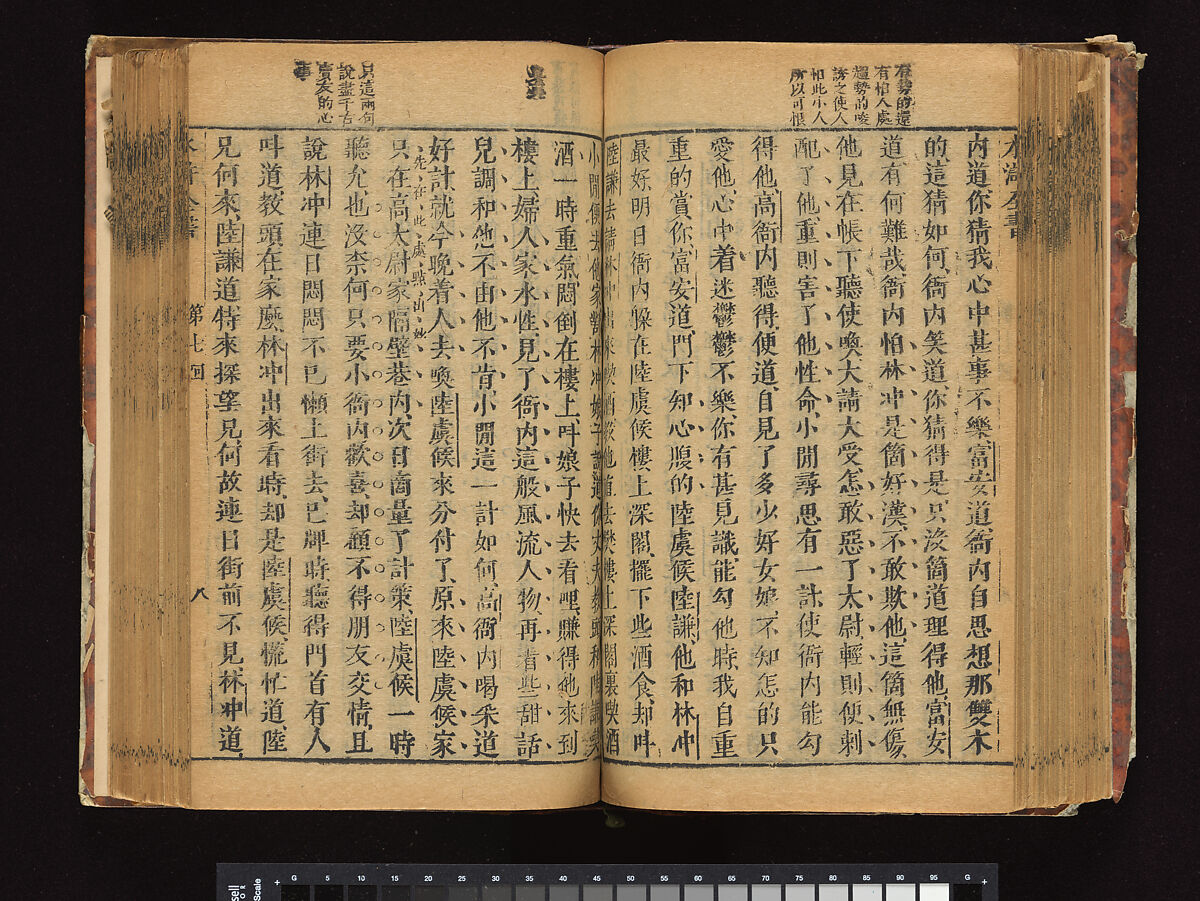 有勢的還
有怕人處
趨勢的唆
誘之使人
怕此小人
所以可恨
水滸全書
内道你猜我心中甚事不樂富安道衙内自思想那雙木
的這猜如何衙内笑道你猜得是只沒箇道理得他富安
道有何難哉衙内怕林冲是箇好漢不敢欺他這箇無傷
他見在帳下聽使喚大請大受怎敢惡了太尉輕則便刺
配了他重則害了他性命小閒尋思有一計使衙内能勾
得他高衙内聽得便道自見了多少好女娘不知怎的只
愛他心中着迷鬱鬱不樂你有甚見識能勾他時我自重
重的賞你富安道門下知心腹的陸虞候陸謙他和林冲
最好明日衙内躲在陸虞候樓上深閣擺下些酒食却呌
陸謙去請林冲出來喫酒教他直去樊樓上深閣裏喫酒
小閒便去他家對林冲娘子說道你丈夫教頭和陸謙喫
酒一時重氣悶倒在樓上呌娘子快去看哩賺得他來到
樓上婦人家水性見了衙内這般風流人物再着些甜話
兒調和他不由他不肯小閒這一計如何高衙内喝采道
好計就今晚着人去喚陸虞候來分付了原來陸虞候家
先在此處點出妙
只在高太尉家隔壁巷内次日商量了計策陸虞候一時
聽允也沒柰何只要小衙内歡喜却顧不得朋友交情且
說林冲連日悶悶不已懶上街去巳牌時聽得門首有人
呌道教頭在家麽林冲出來看時却是陸虞候慌忙道陸
兄何來陸謙道特來探望兄何故連日街前不見林冲道
只這兩句
說盡千古
賣友的心
事
水滸全書
第七回
八